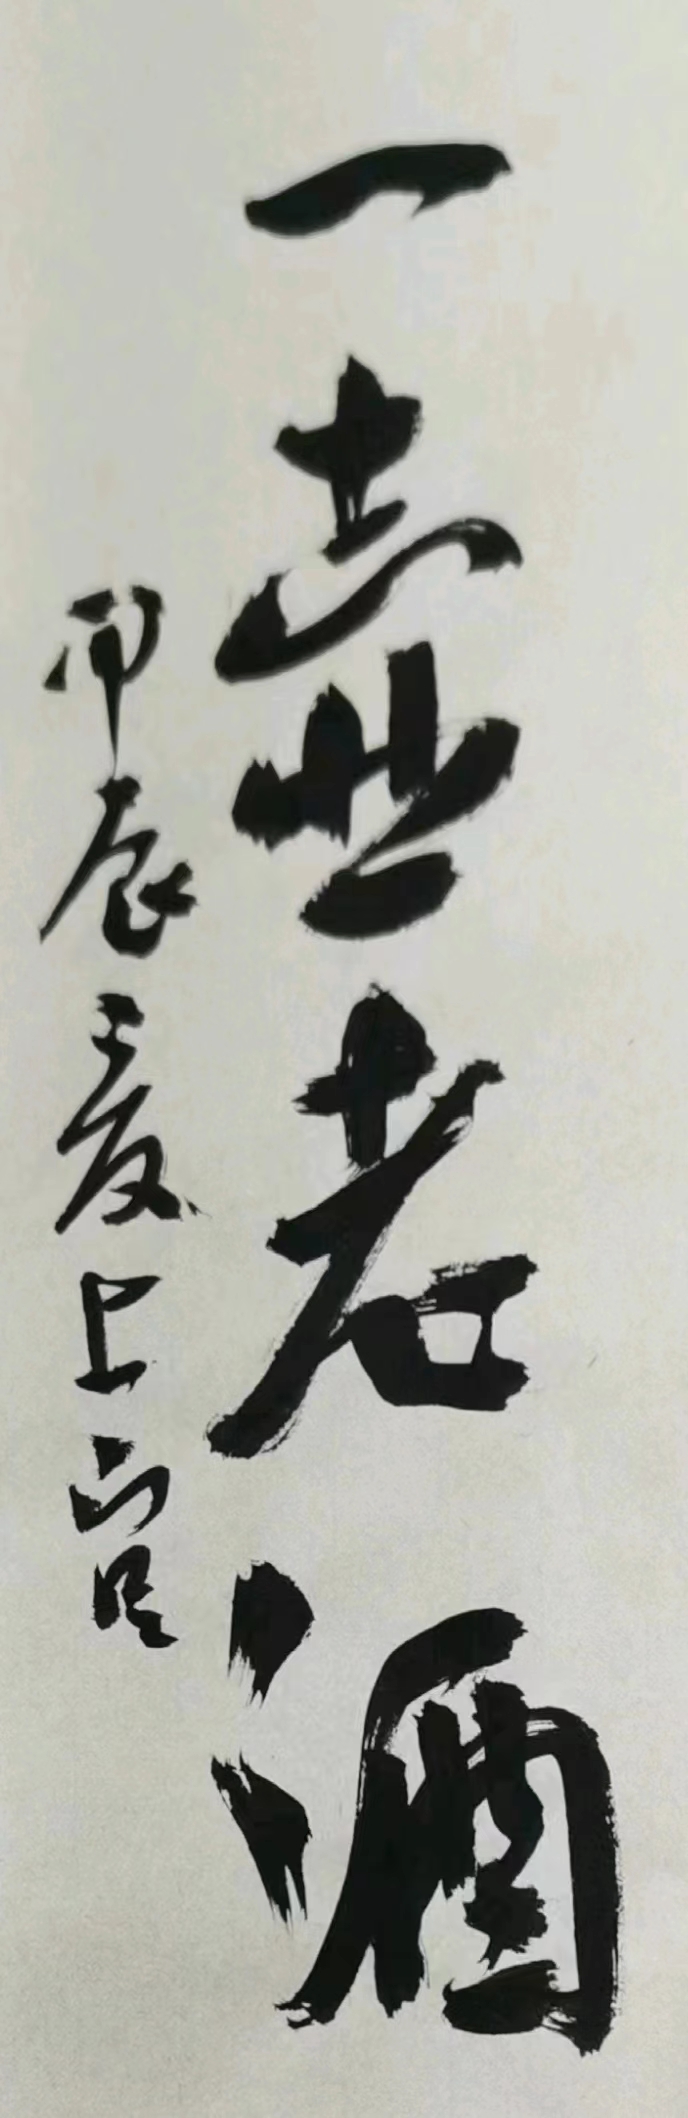 一壶老酒
甲辰夏上官